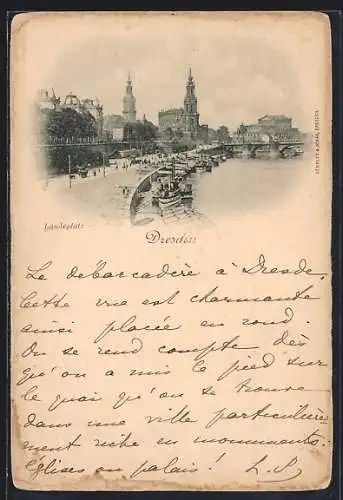 Landeplatz
Dresden
STENGEL & MARKERT, DRESDEN
Le débarcadère à Dresde.
Cette vue est charmante
ainsi placée en rond.
On se rend compte dès
qu'on a mis le pied sur
le quai qu'on se trouve
dans une ville particulière-
ment riche en monuments:
Églises ou palais! L. S.